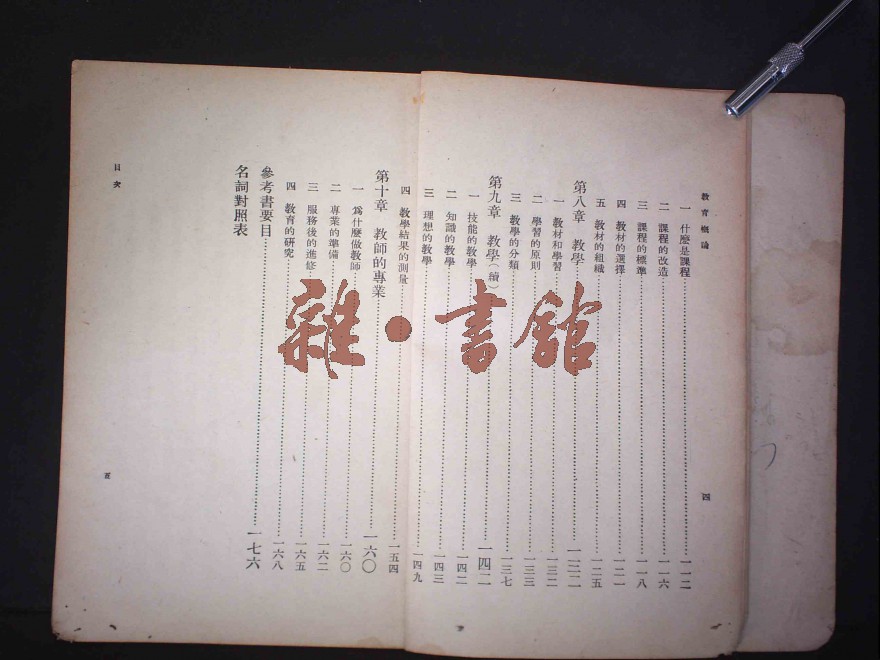 教育概論
一 什麼是課程……一一二
二 課程的改造……一一六
三 課程的標準……一一八
四 教材的選擇……一二一
五 教材的組織……一二五
第八章 教學……一三二
一 教材和學習……一三二
二 學習的原則……一三三
三 教學的分類……一三七
第九章 教學(續)……一四二
一 技能的教學……一四二
二 知識的教學……一四三
三 理想的教學……一四九
四
四 教學結果的測量……一五四
第十章 教師的專業……一六〇
一 爲什麼做教師……一六〇
二 專業的準備……一六二
三 服務後的進修……一六五
四 教育的研究……一六八
參考書要目……一七六
名詞對照表
目次
五
雜·書館